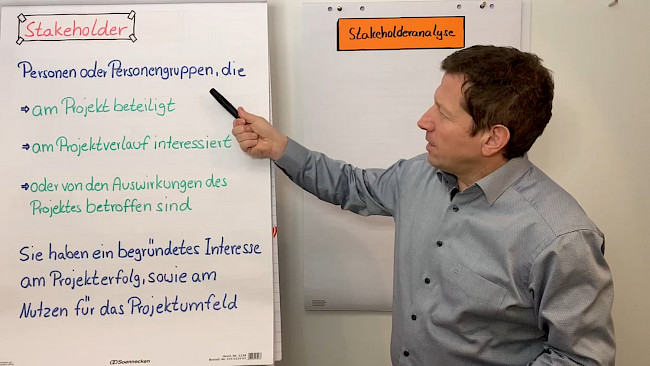 Stakeholder
Personen oder Personengruppen, die
⇒ am Projekt beteiligt
⇒ am Projektverlauf interessiert
⇒ oder von den Auswirkungen des
Projektes betroffen sind
Sie haben ein begründetes Interesse
am Projekterfolg, sowie am
Nutzen für das Projektumfeld
Soennecken
Stakeholderanalyse